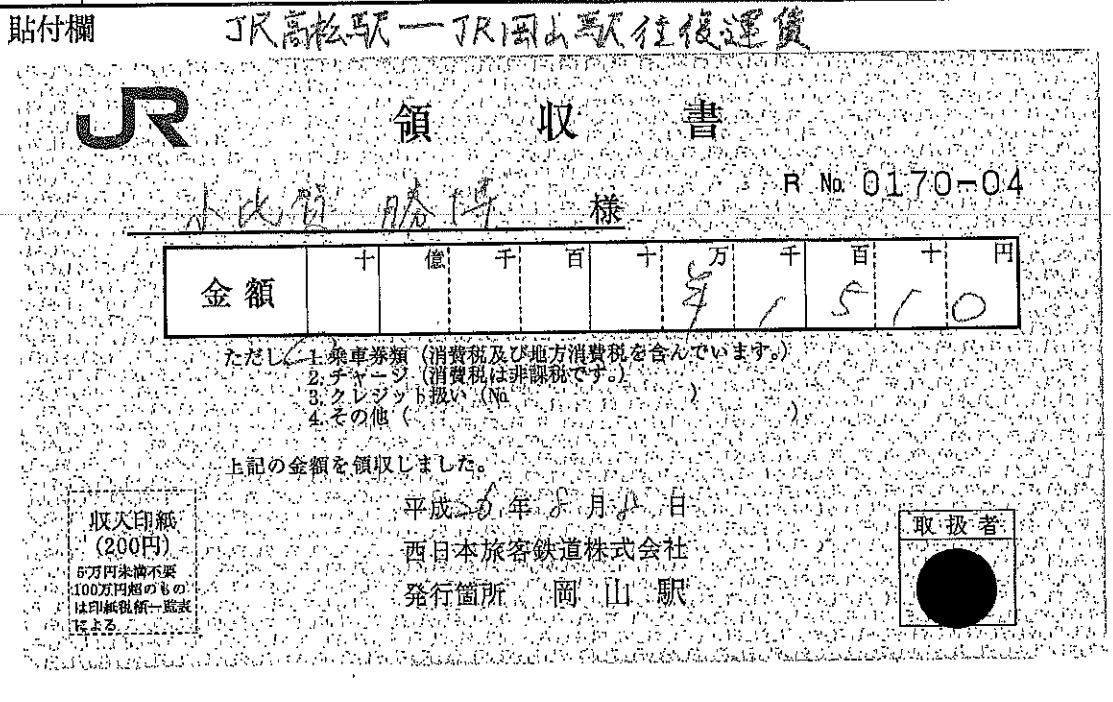 貼付欄 JR高松駅ーJR岡山駅往復運賃
JR
領収書
R No. 0170-04
小比賀 勝博 様
金額 十 億 千 百 十 万 千 百 十 円
¥ 1 5 1 0
ただし 1. 乗車券類 (消費税及び地方消費税を含んでいます。)
2. チャージ (消費税は非課税です。)
3. クレジット扱い (No. )
4. その他 ( )
上記の金額を領収しました。
平成26年8月8日
西日本旅客鉄道株式会社
発行箇所 岡山駅
収入印紙
(200円)
5万円未満不要
100万円超のもの
は印紙税額一覧表
による
取扱者